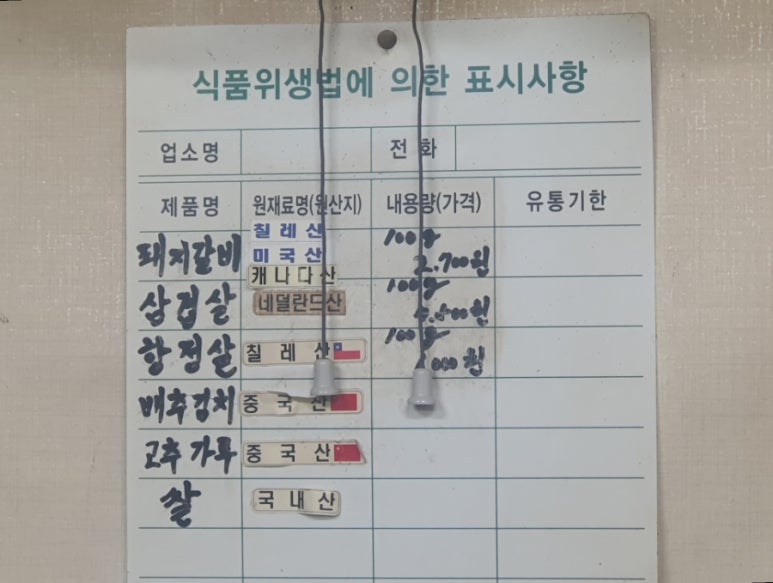 식품위생법에 의한 표시사항
업소명 전화
제품명 원재료명(원산지) 내용량(가격) 유통기한
돼지갈비 칠레산 미국산 100g 2.700원
삼겹살 캐나다산 네덜란드산 100g
항정살 칠레산 100g
배추김치 중국산
고추가루 중국산
쌀 국내산